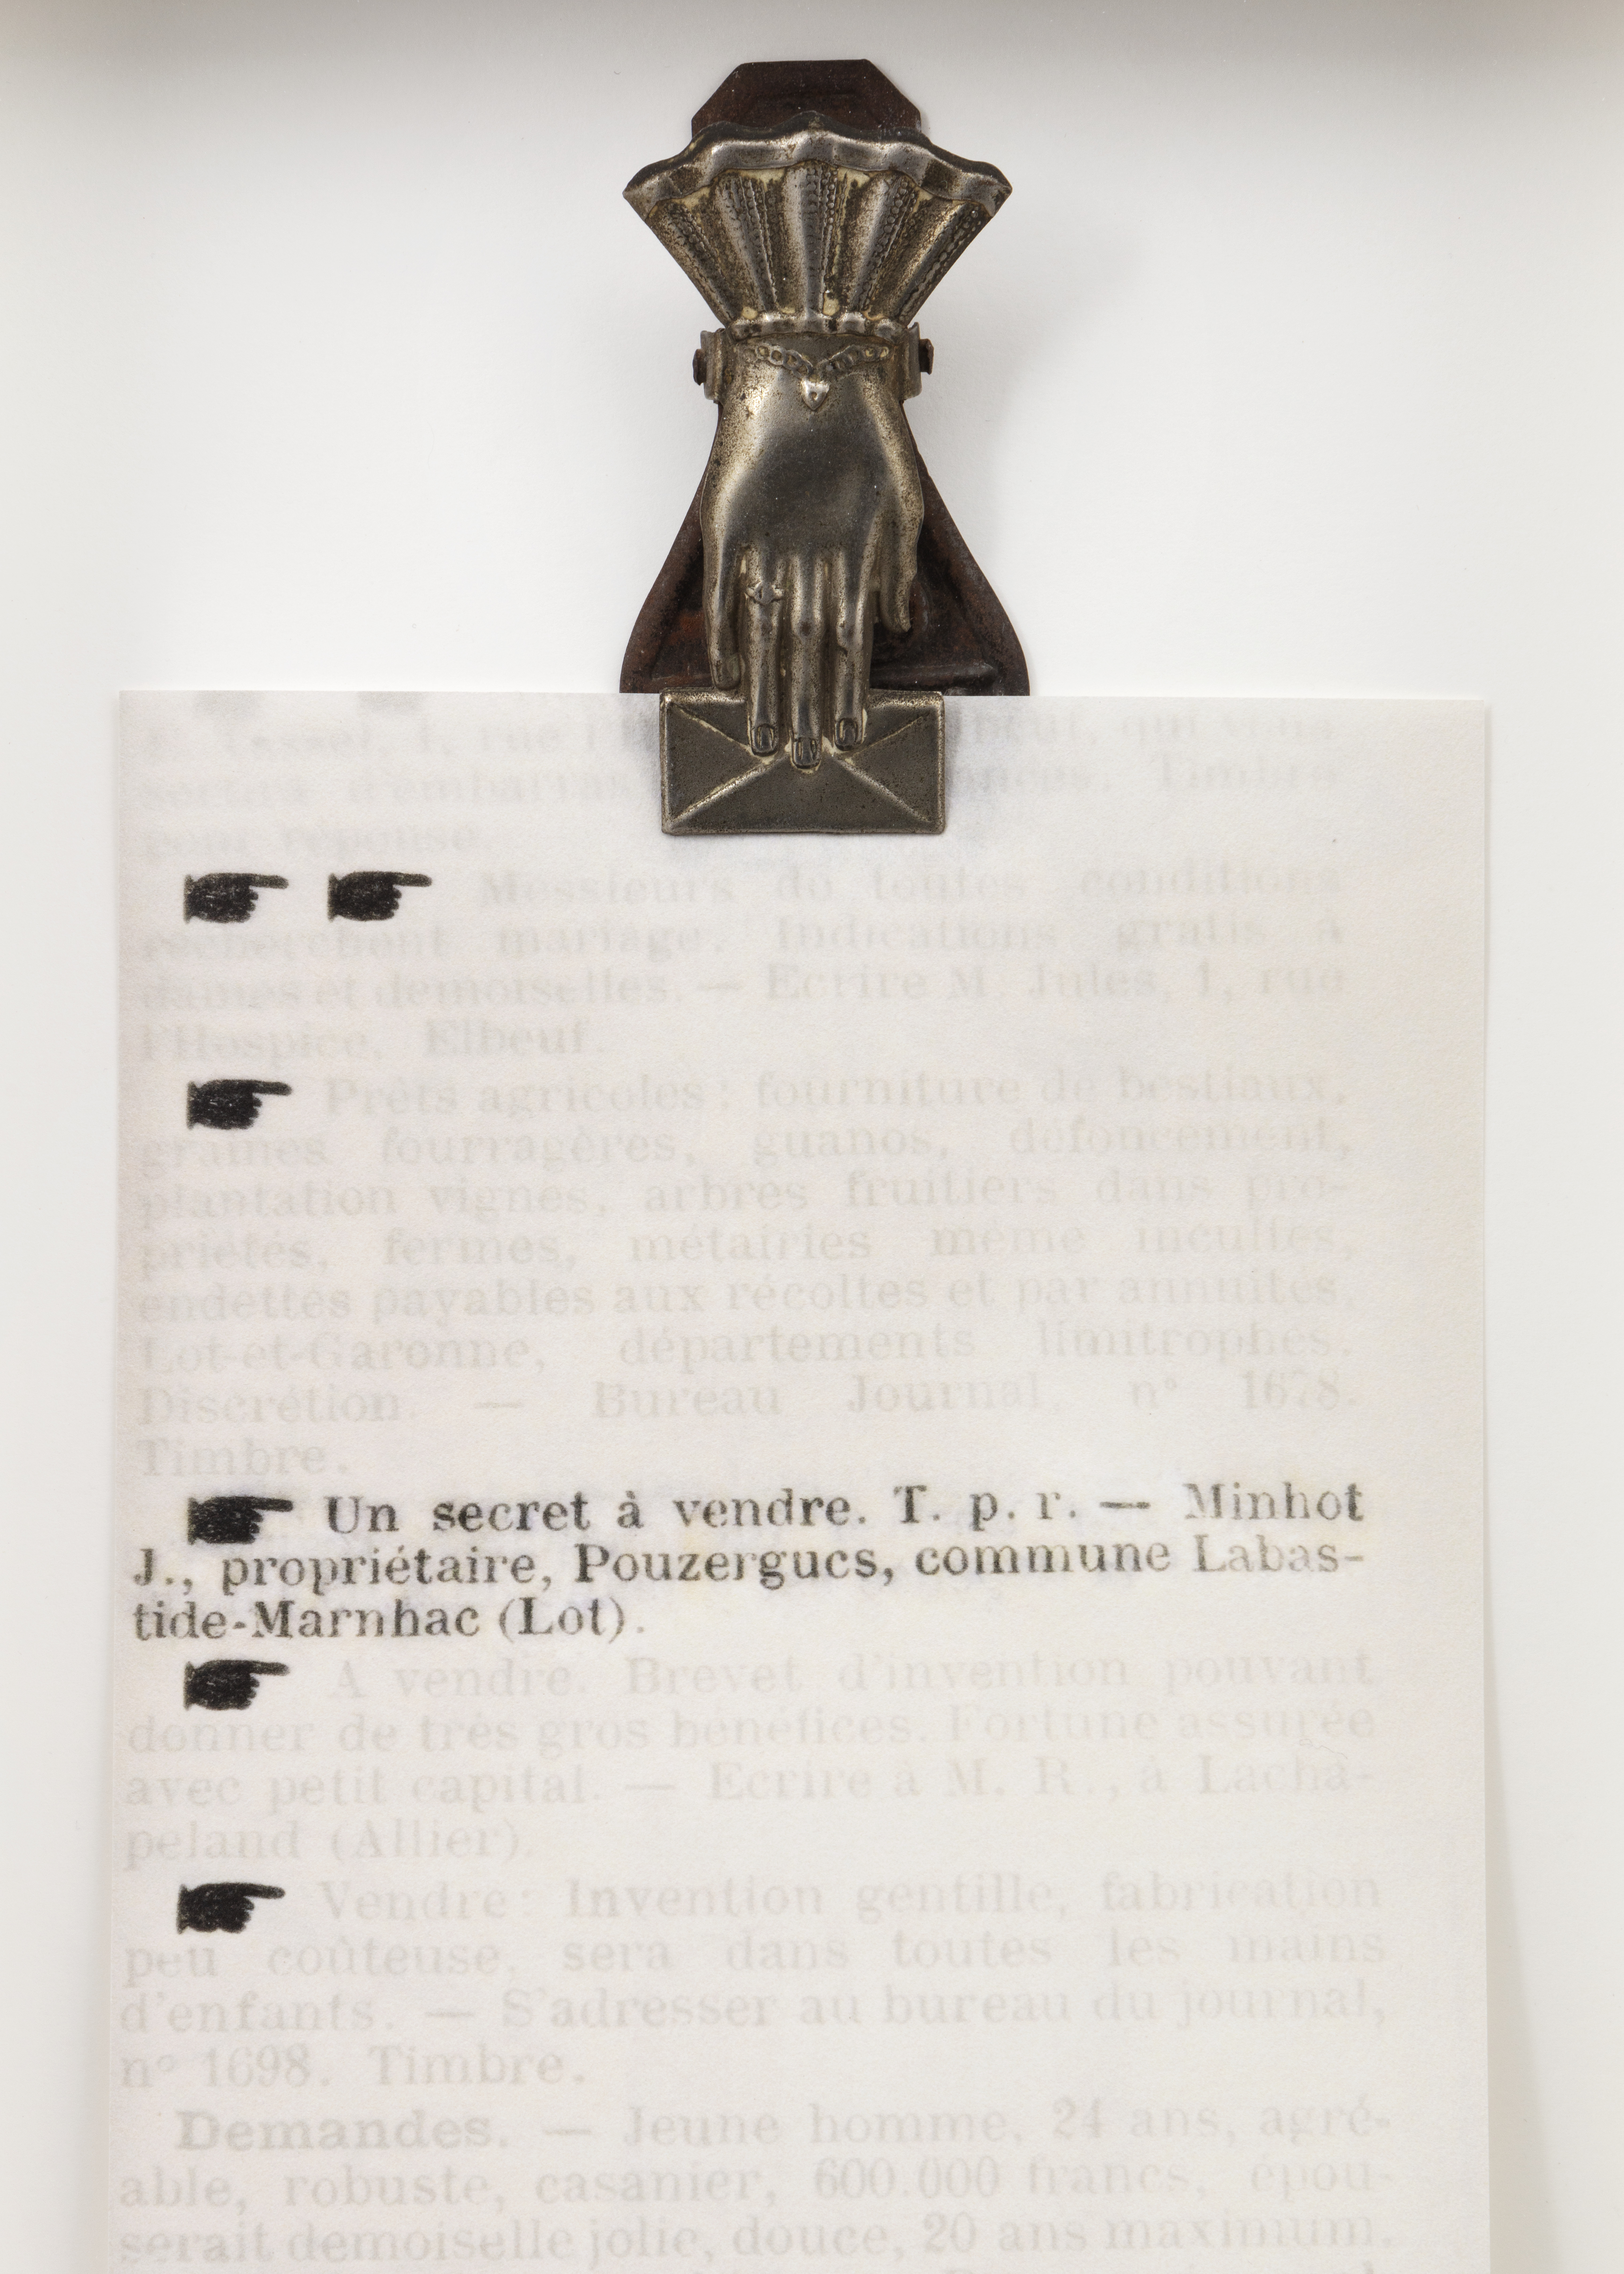 E. Tessel, 1, rue l'H beuf, qui vous
sortira d'embarras nances. Timbre
pour réponse.
☛ ☛ Messieurs de toutes conditions
recherchent mariage. Indications gratis à
dames et demoiselles. — Ecrire M. Jules, 1, rue
l'Hospice, Elbeuf.
☛ Prêts agricoles : fourniture de bestiaux,
graines fourragères, guanos, défoncement,
plantation vignes, arbres fruitiers dans pro-
priétés, fermes, métairies même incultes,
endettés payables aux récoltes et par annuités,
Lot-et-Garonne, départements limitrophes.
Discrétion. — Bureau Journal, n° 1678.
Timbre.
☛ Un secret à vendre. T. p. r. — Minhot
J., propriétaire, Pouzergucs, commune Labas-
tide-Marnhac (Lot).
☛ A vendre. Brevet d'invention pouvant
donner de très gros bénéfices. Fortune assurée
avec petit capital. — Ecrire à M. R., à Lacha-
peland (Allier).
☛ Vendre : Invention gentille, fabrication
peu coûteuse, sera dans toutes les mains
d'enfants. — S'adresser au bureau du journal,
n° 1698. Timbre.
Demandes. — Jeune homme, 24 ans, agré-
able, robuste, casanier, 600.000 francs, épou-
serait demoiselle jolie, douce, 20 ans maximum,